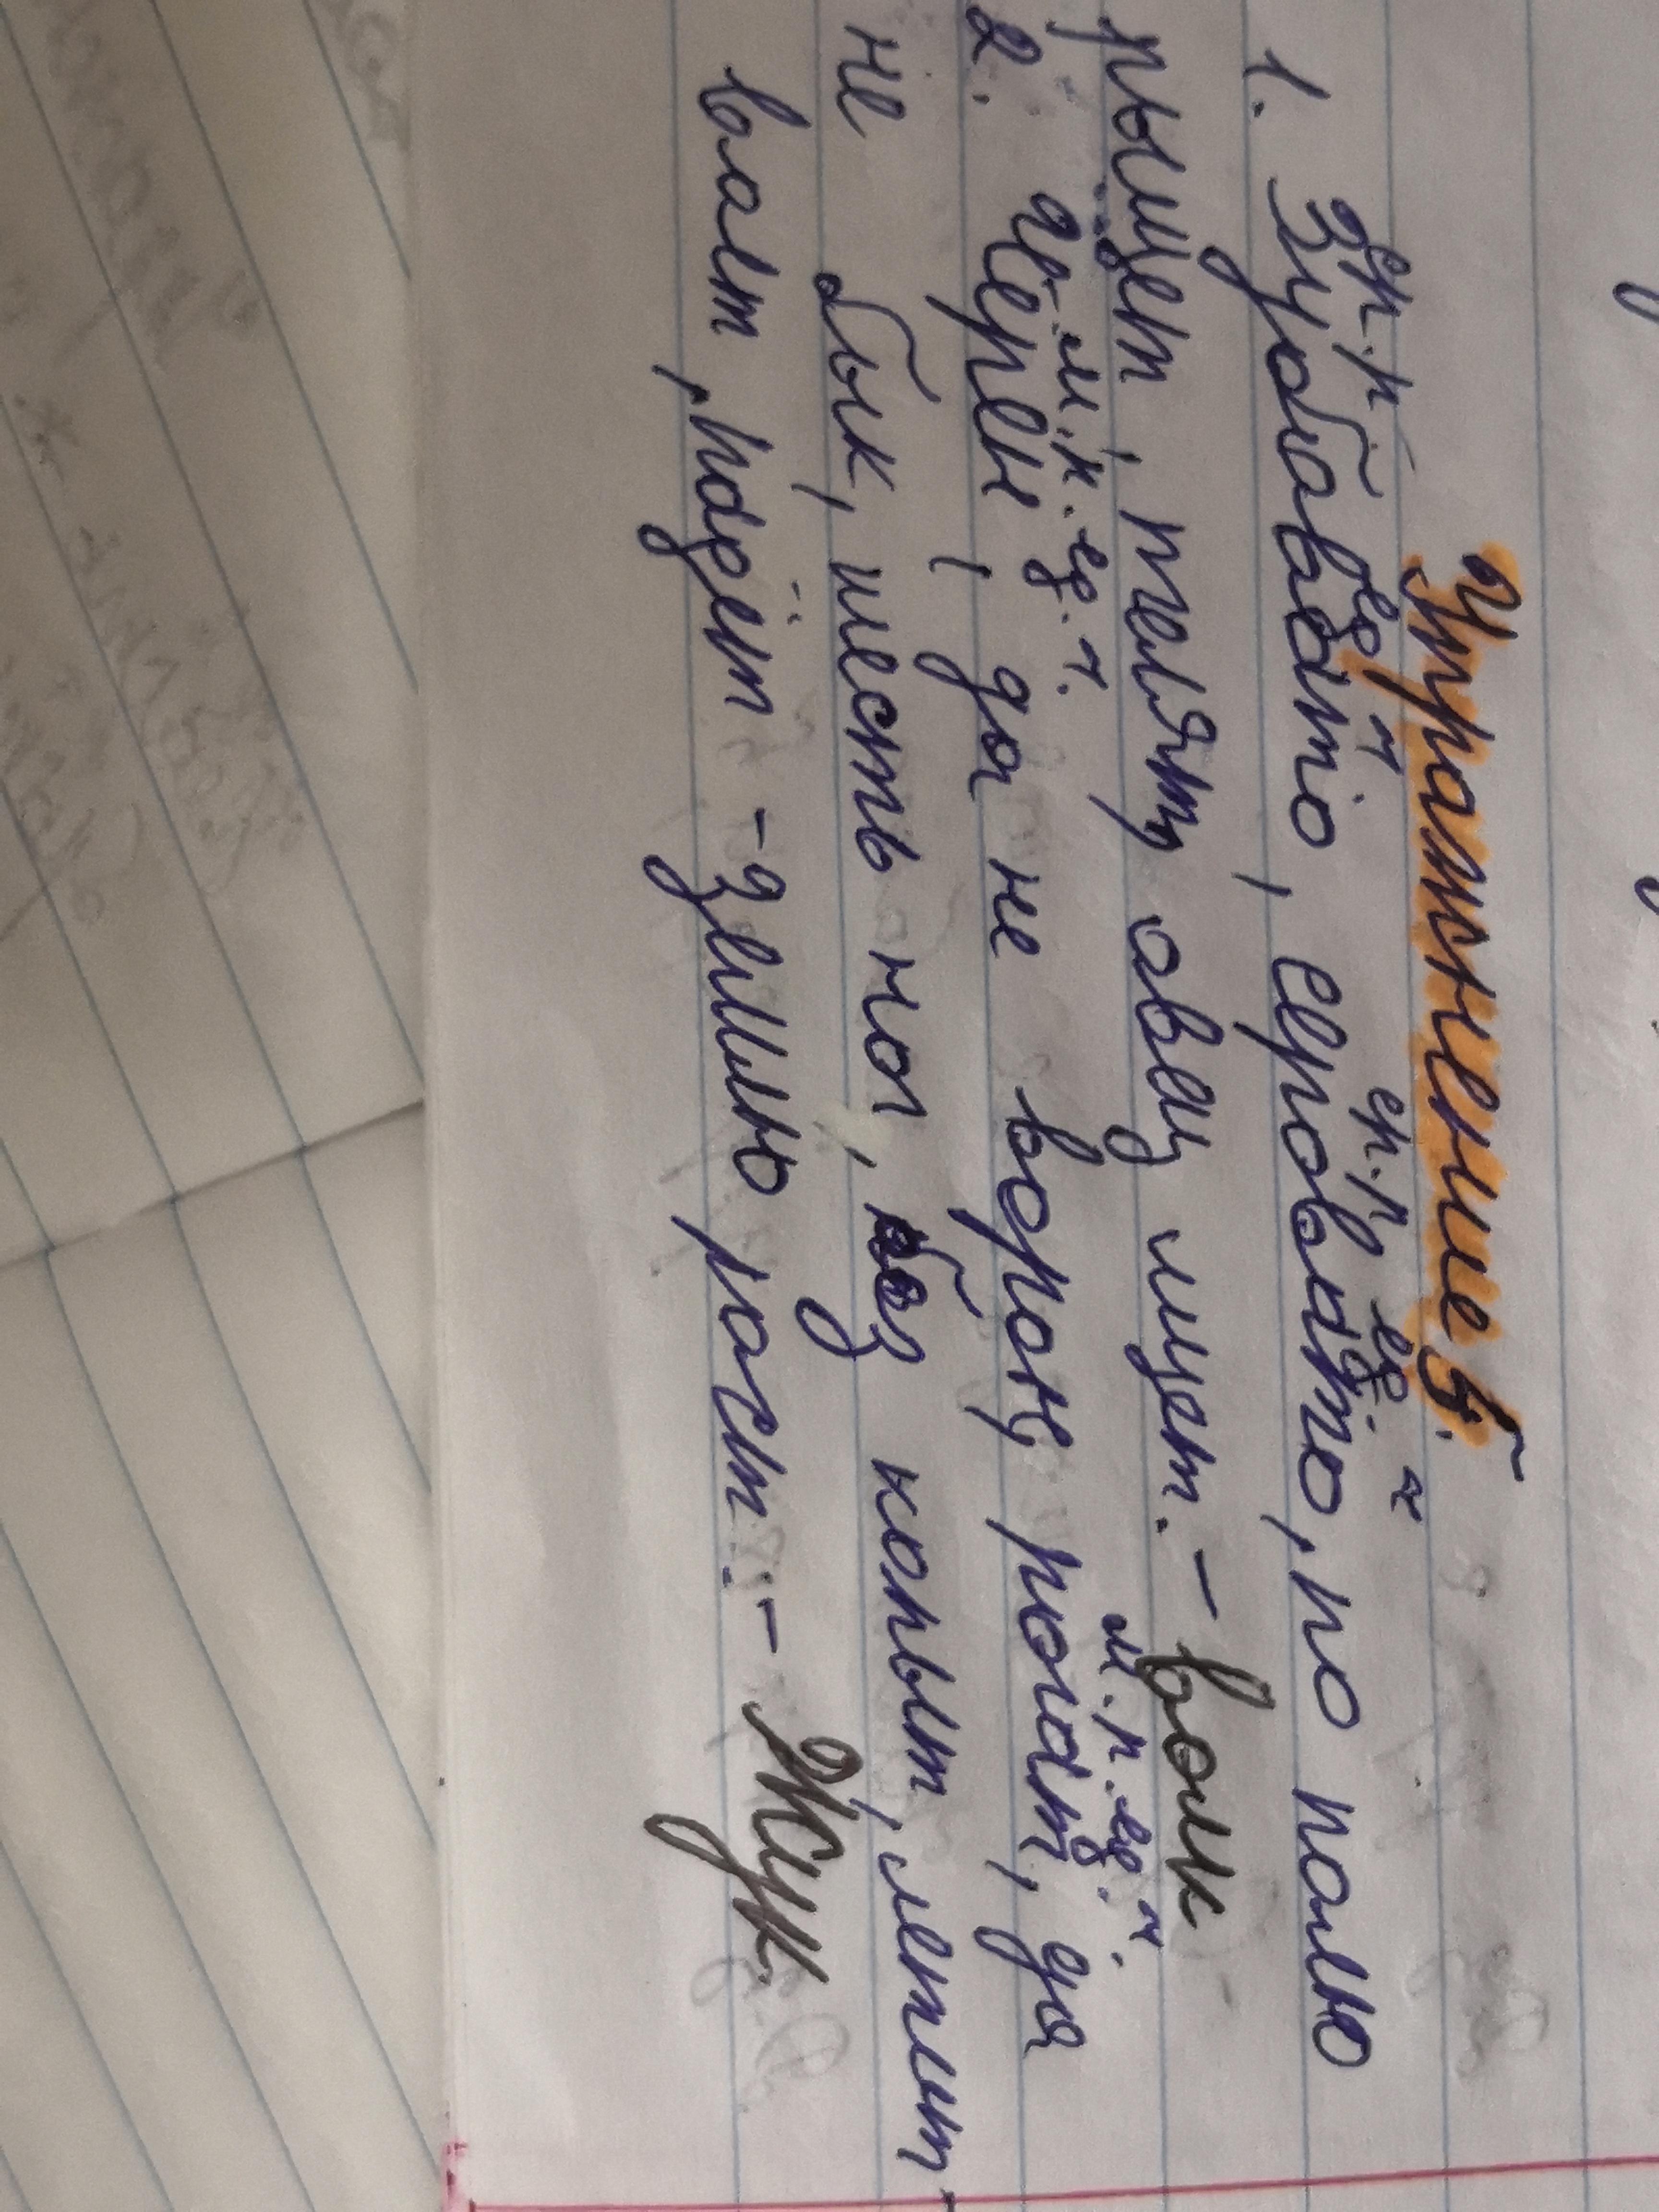 Упражнение 5.
ср.р. ед ч ср.р ед. ч
1. Зубавато, серовато, по полю
рыщет, телят, овец ищет. - волк
м.р. ед. ч. м.р. ед. ч.
2. Чёрен, да не ворон, рогат, да
не бык, шесть ног, без копыт, летит -
воет, падёт - землю роет. - Жук.